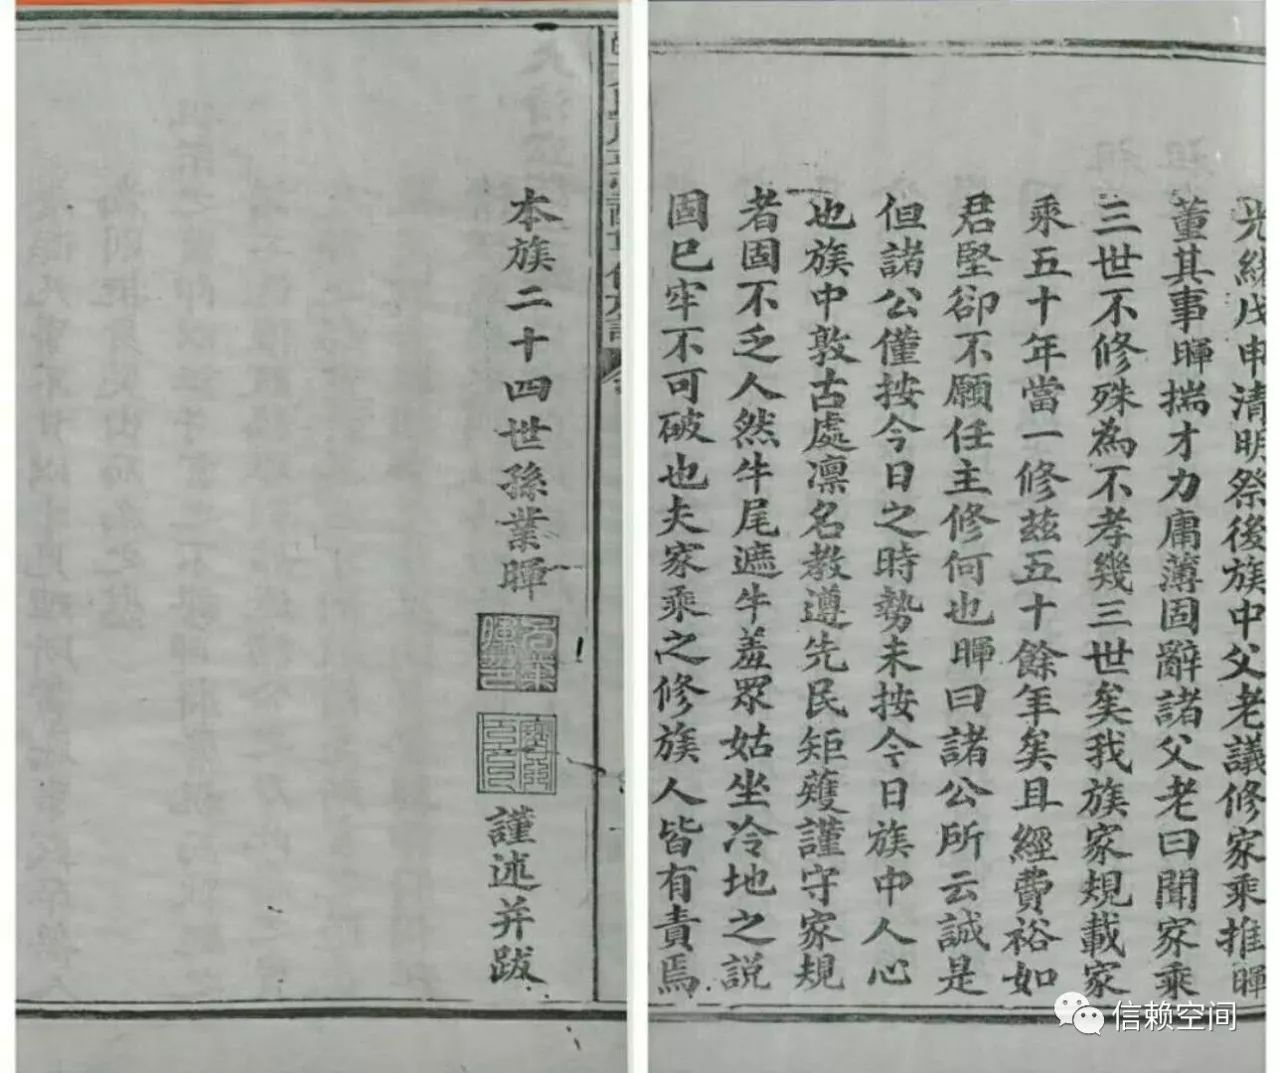 光緒戊申清明祭後族中父老議修家乘推暉
董其事暉揣才力庸薄固辭諸父老曰聞家乘
三世不修殊為不孝幾三世矣我族家規載家
乘五十年當一修茲五十餘年矣且經費裕如
君堅卻不願任主修何也暉曰諸公所云誠是
但諸公僅按今日之時勢未按今日族中人心
也族中敦古處凜名教遵先民矩矱謹守家規
者固不乏人然牛尾遮牛羞眾姑坐冷地之説
固已牢不可破也夫家乘之修族人皆有責焉
本族二十四世孫業暉
謹述并跋
信赖空间